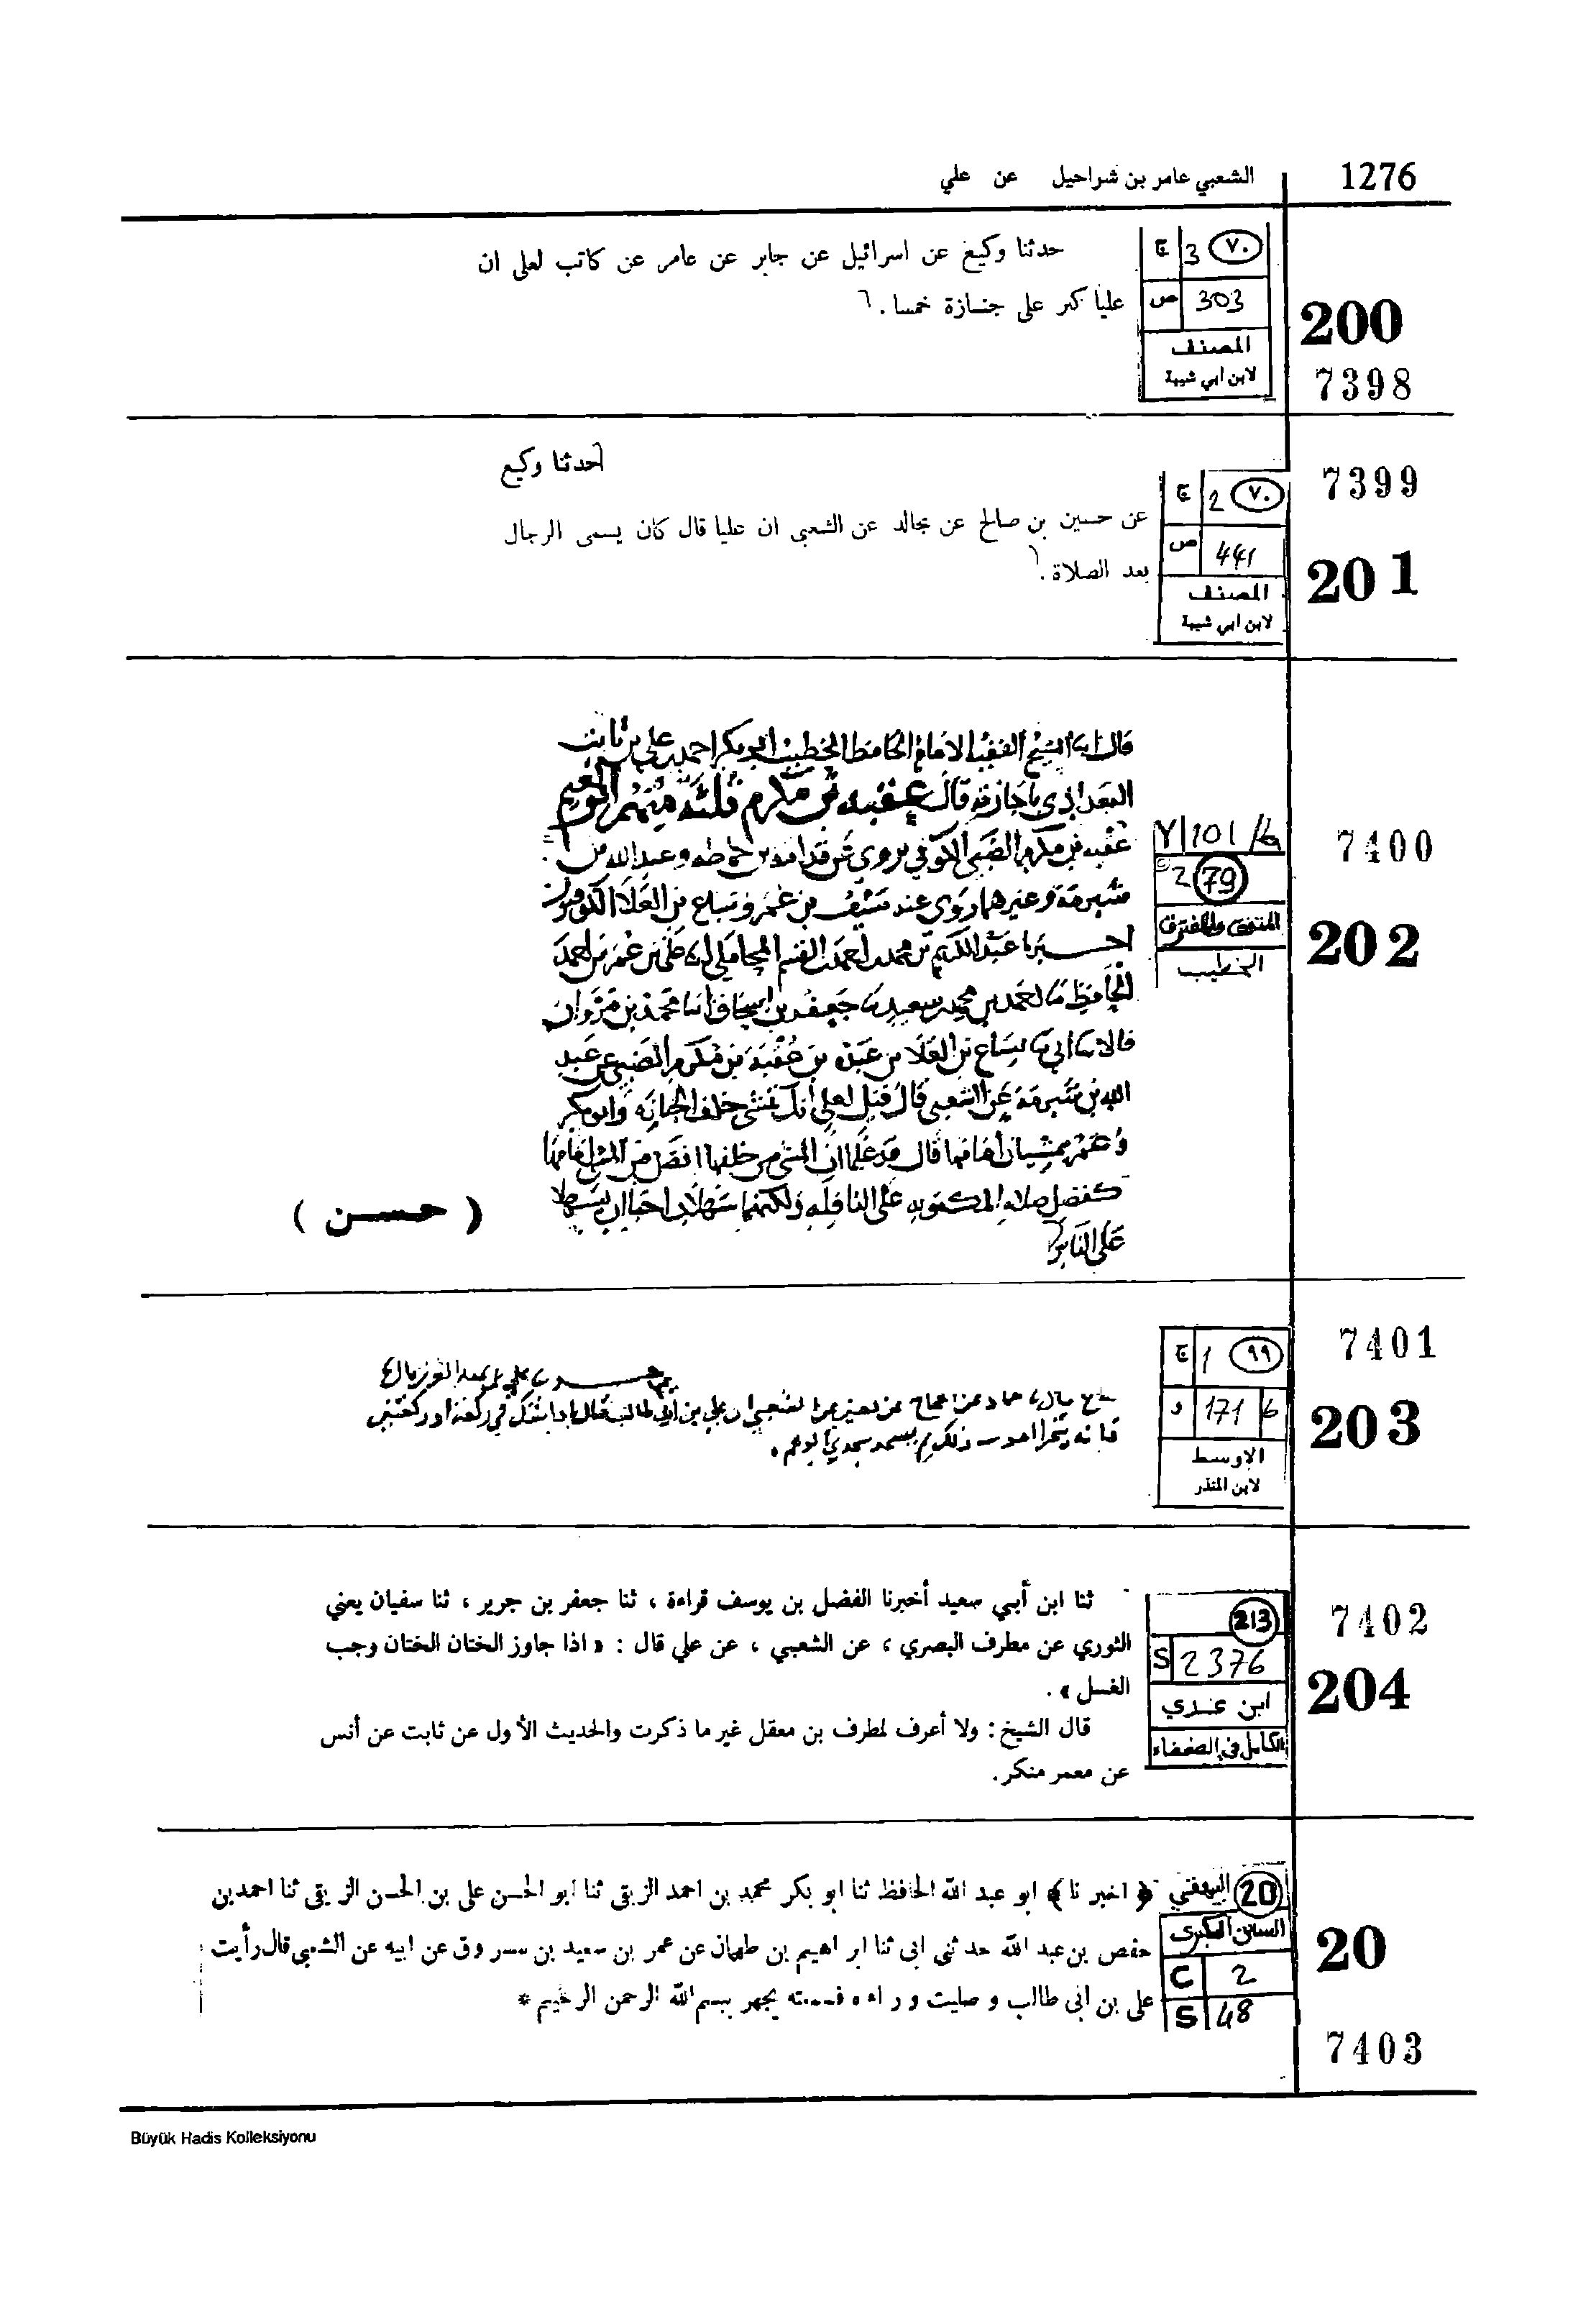 1276
الشعبي عامر بن شراحيل عن علي
ج 3 ٧٠
ص 303
المصنف
لابن ابي شيبة
200
7398
حدثنا وكيع عن اسرائيل عن جابر عن عامر عن كاتب لعلى ان
عليا كبر على جنازة خمسا .
7399
ج 2 ٧٠
ص 441
المصنف
لابن ابي شيبة
201
حدثنا وكيع
عن حسين بن صالح عن مجالد عن الشعبى ان عليا قال كان يسمى الرجال
بعد الصلاة .
7400
Y 101/b
2 79
المتفق والمفترق
الخطيب
202
الشيخ الفقيه الامام الحافظ الخطيب ابو بكر احمد بن علي بن ثابت
البغدادي باجازته قال عقبه بن مكرم ثلثه منهم
عقبه بن مكرم الضبي الكوفي يروي عن قدامه بن حماطه وعبد الله بن
شبرمة وغيرهما روى عنه بن عمر و بن العلا الكوفيون
عبد الكريم بن محمد بن احمد بن القسم المحاملي علي بن عمر بن احمد
الحافظ احمد بن محمد بن سعيد جعفر بن محمد بن مروان
قالا ابي بن العلا عن عقبة بن مكرم الضبي عن عبد
الله بن شبرمة عن الشعبي قال قيل لعلي انك تمشي خلف الجنازه وابو بكر
وعمر يمشيان امامها قال قد علما ان المشي من خلفها افضل من المشي امامها
كفضل صلاه المكتوبه على النافله ولكنهما سهلان احبا ان يسهلا
على الناس
( حسن )
7401
ج 1 ٩٩
و 171 b
الاوسط
لابن المنذر
203
علي بن عبد العزيز قال
حماد عن الشعبي ان علي بن ابي طالب قال اذا شك في ركعة او ركعتين
فانه ذلك ثم يسجد سجدتي الوهم .
7402
213
S 2376
ابن عدي
الكامل في الضعفاء
204
ثنا ابن أبي سعيد أخبرنا الفضل بن يوسف قراءة ، ثنا جعفر بن جرير ، ثنا سفيان يعني
الثوري عن مطرف البصري ، عن الشعبي ، عن علي قال : « اذا جاوز الختان الختان وجب
الغسل » .
قال الشيخ : ولا أعرف لمطرف بن معقل غير ما ذكرت والحديث الأول عن ثابت عن أنس
عن معمر منكر .
البيهقي 20
السنن الكبرى
C 2
S 48
20
7403
﴿ اخبر نا ﴾ ابو عبد الله الحافظ ثنا ابو بكر محمد بن احمد الزبقى ثنا ابو الحسن على بن الحسن الزيقى ثنا احمد بن
حفص بن عبد الله حدثنى ابى ثنا ابراهيم بن طهمان عن عمر بن سعيد بن مسروق عن ابيه عن الشعبي قال رأيت
على بن ابى طالب وصليت وراءه فسمعته يجهر ببسم الله الرحمن الرحيم *
Büyük Hadis Kolleksiyonu